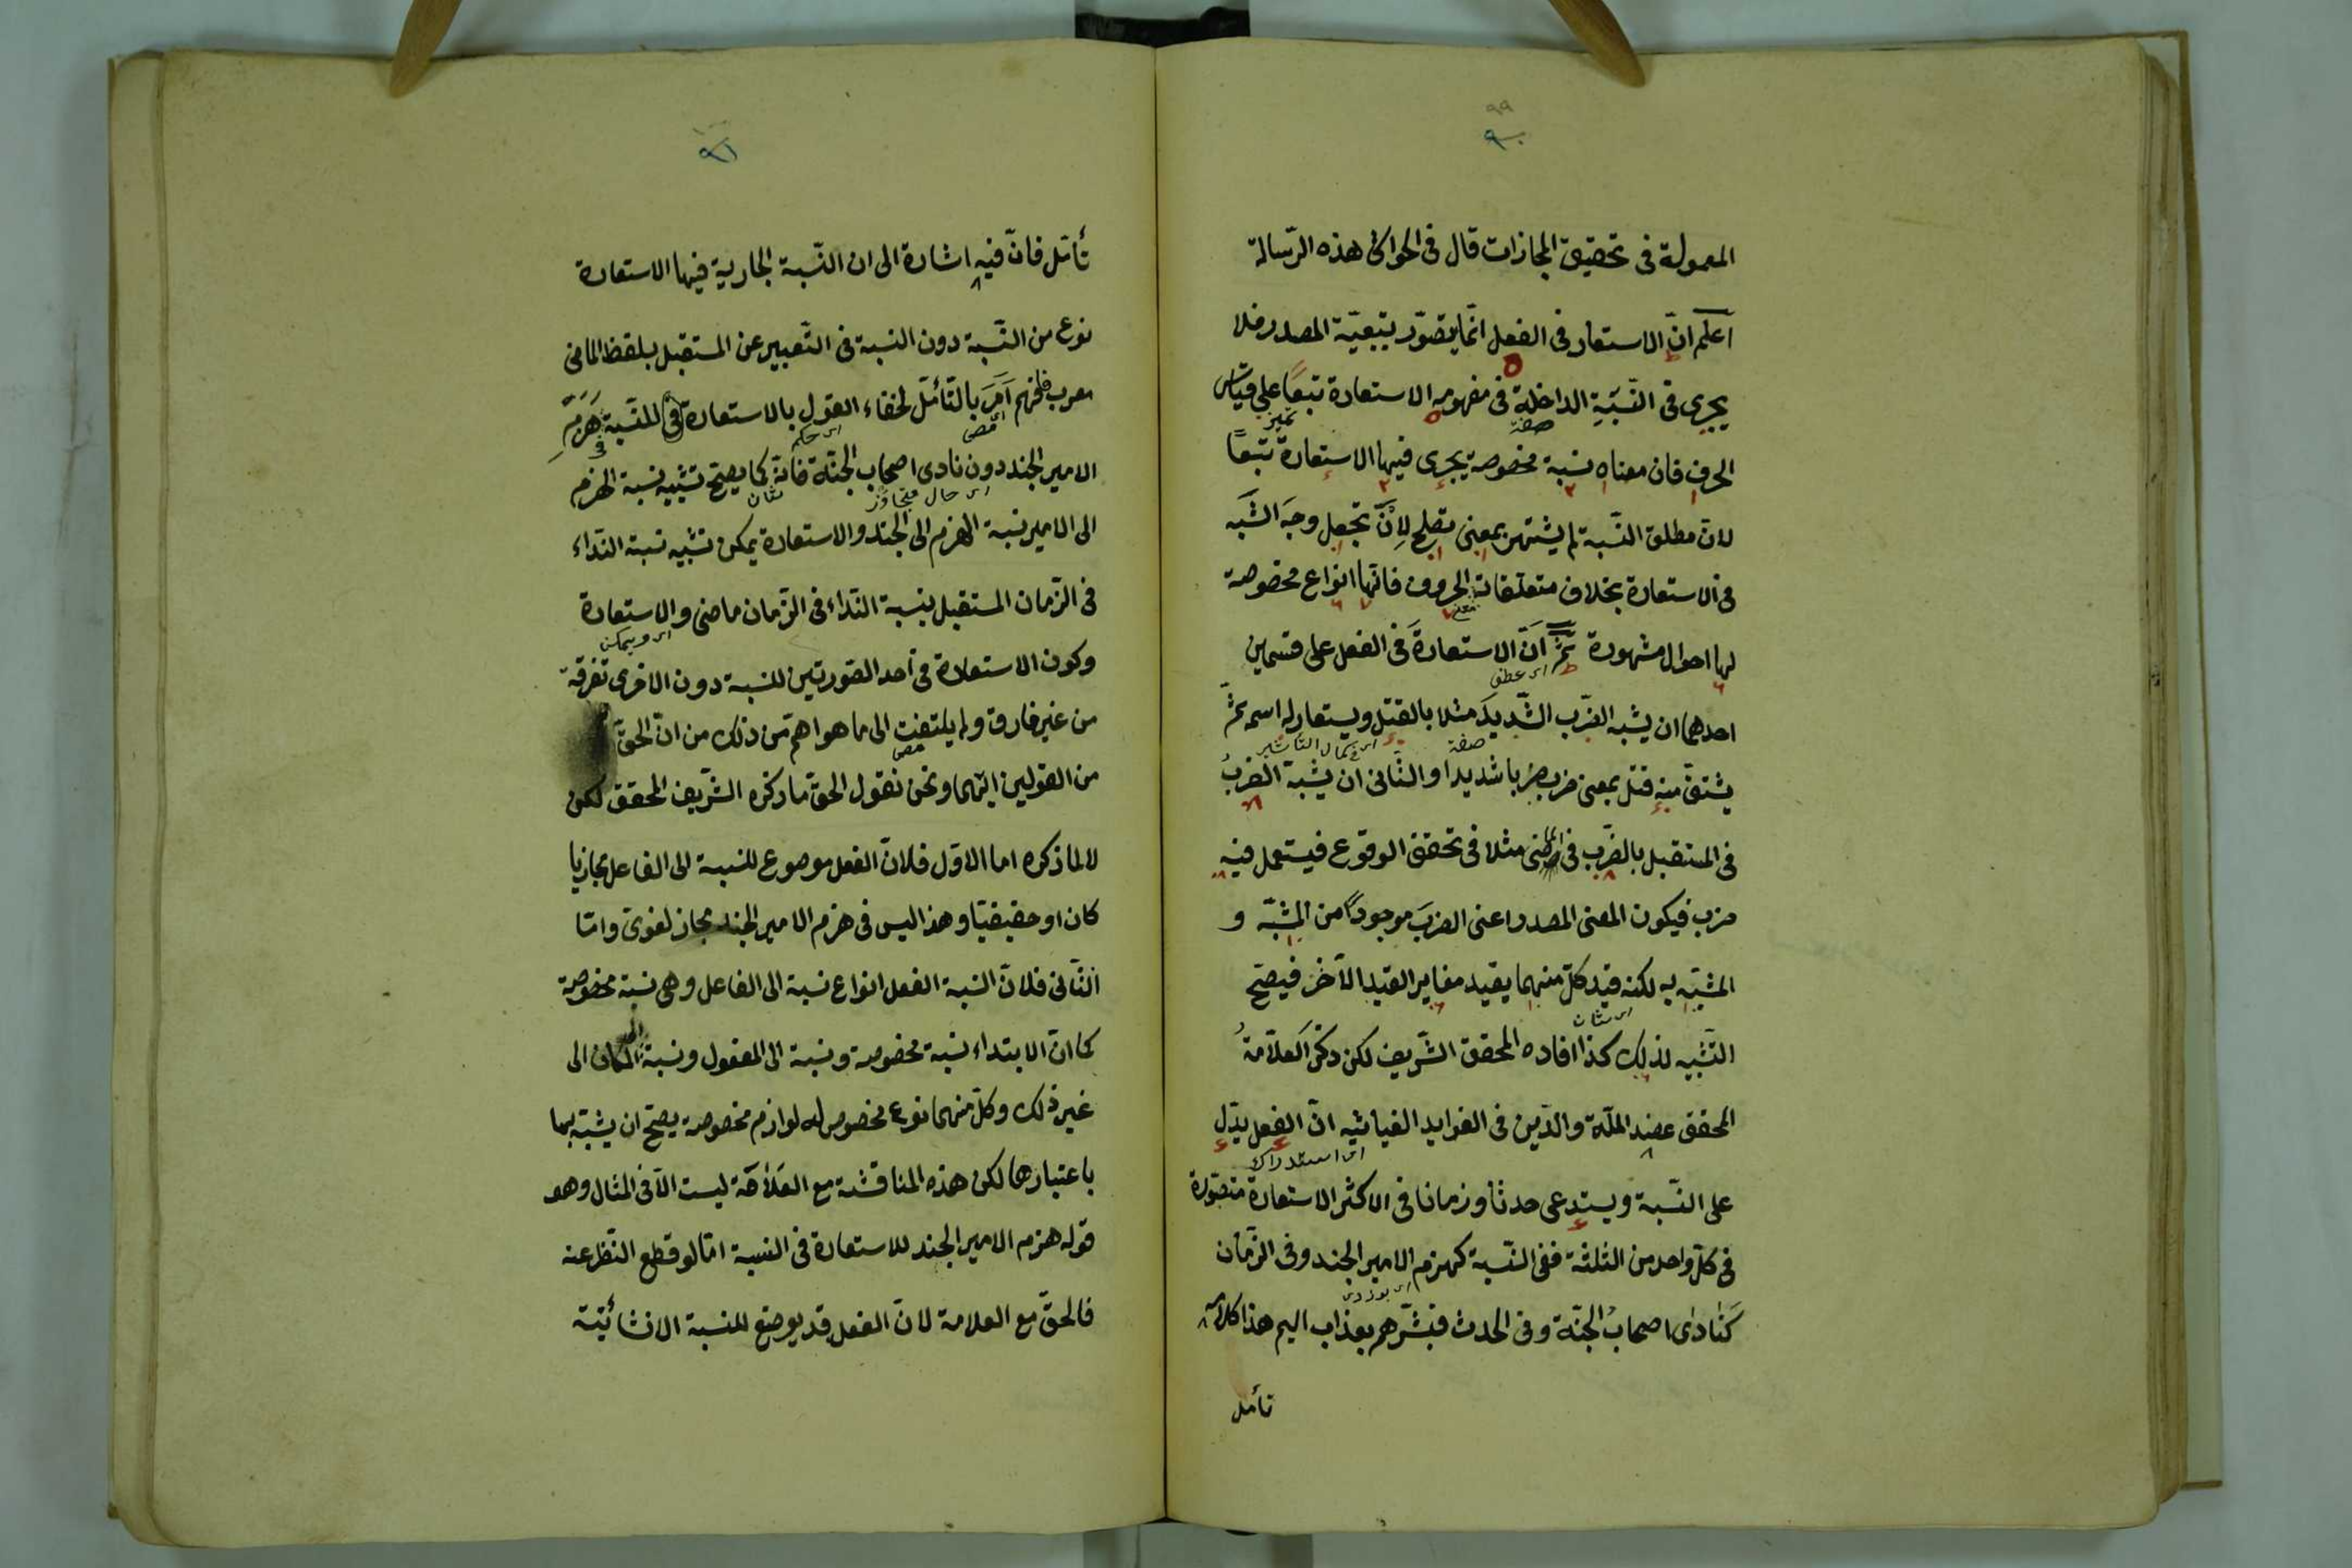 ٩٩
٩٠
المعمولة فى تحقيق المجازات قال فى الحواشى هذه الرّسالة
اعلم انّ الاستعار فى الفعل انّما يتصوّر بتبعيّة المصدر فلا
يجرى فى النّسبَةِ الداخلة فى مفهومه الاستعارة تبعًا على قياس
صفة تميز
الحرف فان معناه نسبة مخصوصة يجرى فيها الاستعارة تبعًا
لان مطلق النّسبة لم يشتهر بمعنى تصلح لِاَنّ تجعل وجهَ الشّبَه
فى الاستعارة بخلاف متعلّقات الحروف فانّها انواع مخصوصة
لها احوال مشهورة ثمّ انّ الاستعارةَ فى الفعل على قسمين
اى عطف
احدهما ان يشبه الضّرب الشّديدَ مثلا بالقتل ويستعار له اسمه ثمّ
صفة اى كمال التأثير
يشتقّ منه قتل بمعنى ضرب ضربا شديدا والثّانى ان يشبّه الضربُ
فى المستقبل بالضّرب فى الماضى مثلا فى تحقق الوقوع فيستعمل فيه
ضرب فيكون المعنى المصدر اعنى الضربَ موجودًا من المشبّه و
المشبّه به لكنه قيد كلّ منهما بقيد مغاير القيد الآخر فيصحّ
اى شان
التّشبيه لذلك كذا افاده المحقق الشّريف لكن ذكر العلاّمةُ
المحقق عضد الملّة والدّين فى الفوايد الغياثيه انّ الفعل يدّل
اى استدراك
على النّسبة ويستدعى حدثا وزمانا فى الاكثر الاستعارة متصوّرة
فى كلّ واحد من الثلثة ففى النّسبة كهزم الامير الجند وفى الزّمان
كَنَادٰى اصحابُ الجنّة وفى الحدث فبشّرهم بعذاب اليم هذا كلامه
تأمل
٩١
تأمّل فانّ فيه اشارة الى ان النّسبة الجارية فيها الاستعارة
نوع من النّسبة دون النسبة فى التّعبير عن المستقبل بلفظ الماضى
معرب فافهم اَمَرَ بالتّأمّل لخفاء القول بالاستعارة فى النّسبة هَزَمَ
اى حكم
الامير الجند دون نادى اصحاب الجنّة فانّه كما يصحّ تشبيه نسبة الهزم
اى حال متجاوز شان
الى الامير نسبة الهزم الى الجند والاستعارة يمكن تشبيه نسبة النّداء
فى الزّمان المستقبل بنسبة النّداء فى الزّمان ماضى والاستعارة
اى ويمكن
وكون الاستعارة فى احد الصّورتين للنسبة دون الاخرى تفرقة
من غير فارق ولم يلتفت الى ما هو اهمّ من ذلك من انّ الحقّ
من القولين ايّهما ونحن نقول الحق ما ذكره الشّريف المحقق لكن
لا لما ذكره اما الاوّل فلانّ الفعل موضوع للنسبة الى الفاعل مجازيا
كان او حقيقيّا وهذا ليس فى هزم الامير الجند مجاز لغوىّ وامّا
الثّانى فلانّ النّسبة الفعل انواع نسبة الى الفاعل وهى نسبة مخصوصة
كما انّ الابتداء نسبة مخصوصة ونسبة الى المفعول ونسبة الى المكان الى
غير ذلك وكلّ منهما نوع مخصوص له لوازم مخصوصة يصحّ ان يشبّه بهما
باعتبارها لكن هذه المناقشة مع العلاّمة ليست الّا فى المثال وهو
قوله هزم الامير الجند للاستعارة فى النسبة امّا لو قطع النّظر عنه
فالحقّ مع العلامة لانّ الفعل قد يوضع للنسبة الانشائيّة